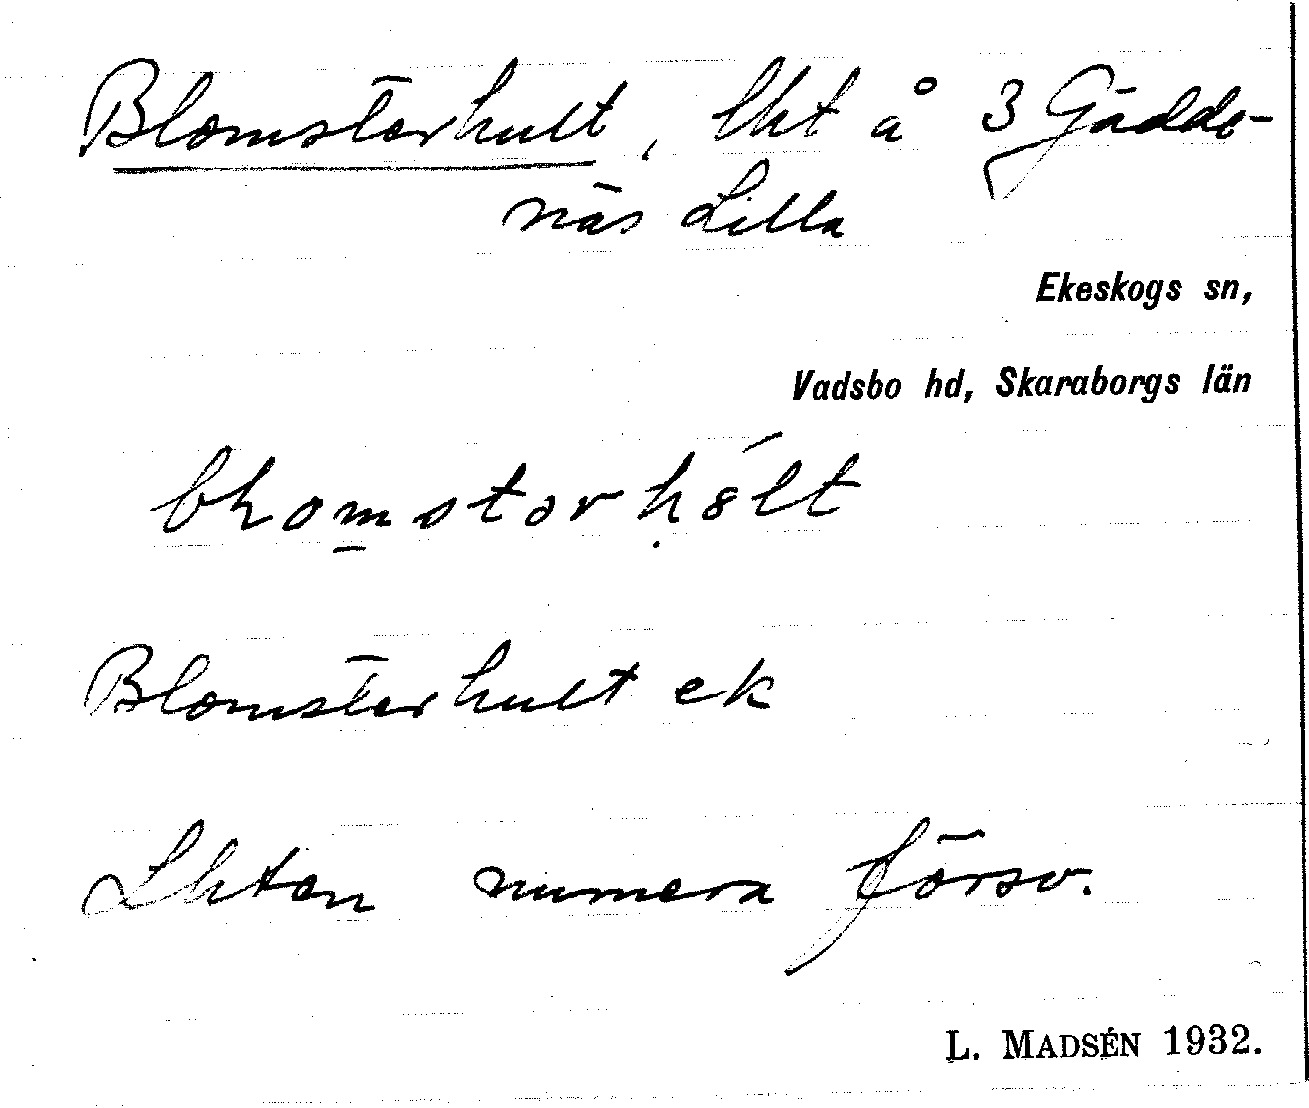 Blomsterhult, lht å 3 Gädde-
näs Lilla
Ekeskogs sn,
Vadsbo hd, Skaraborgs län
Blomsterhult ek
Lhten numera försv.
L. MADSÉN 1932.